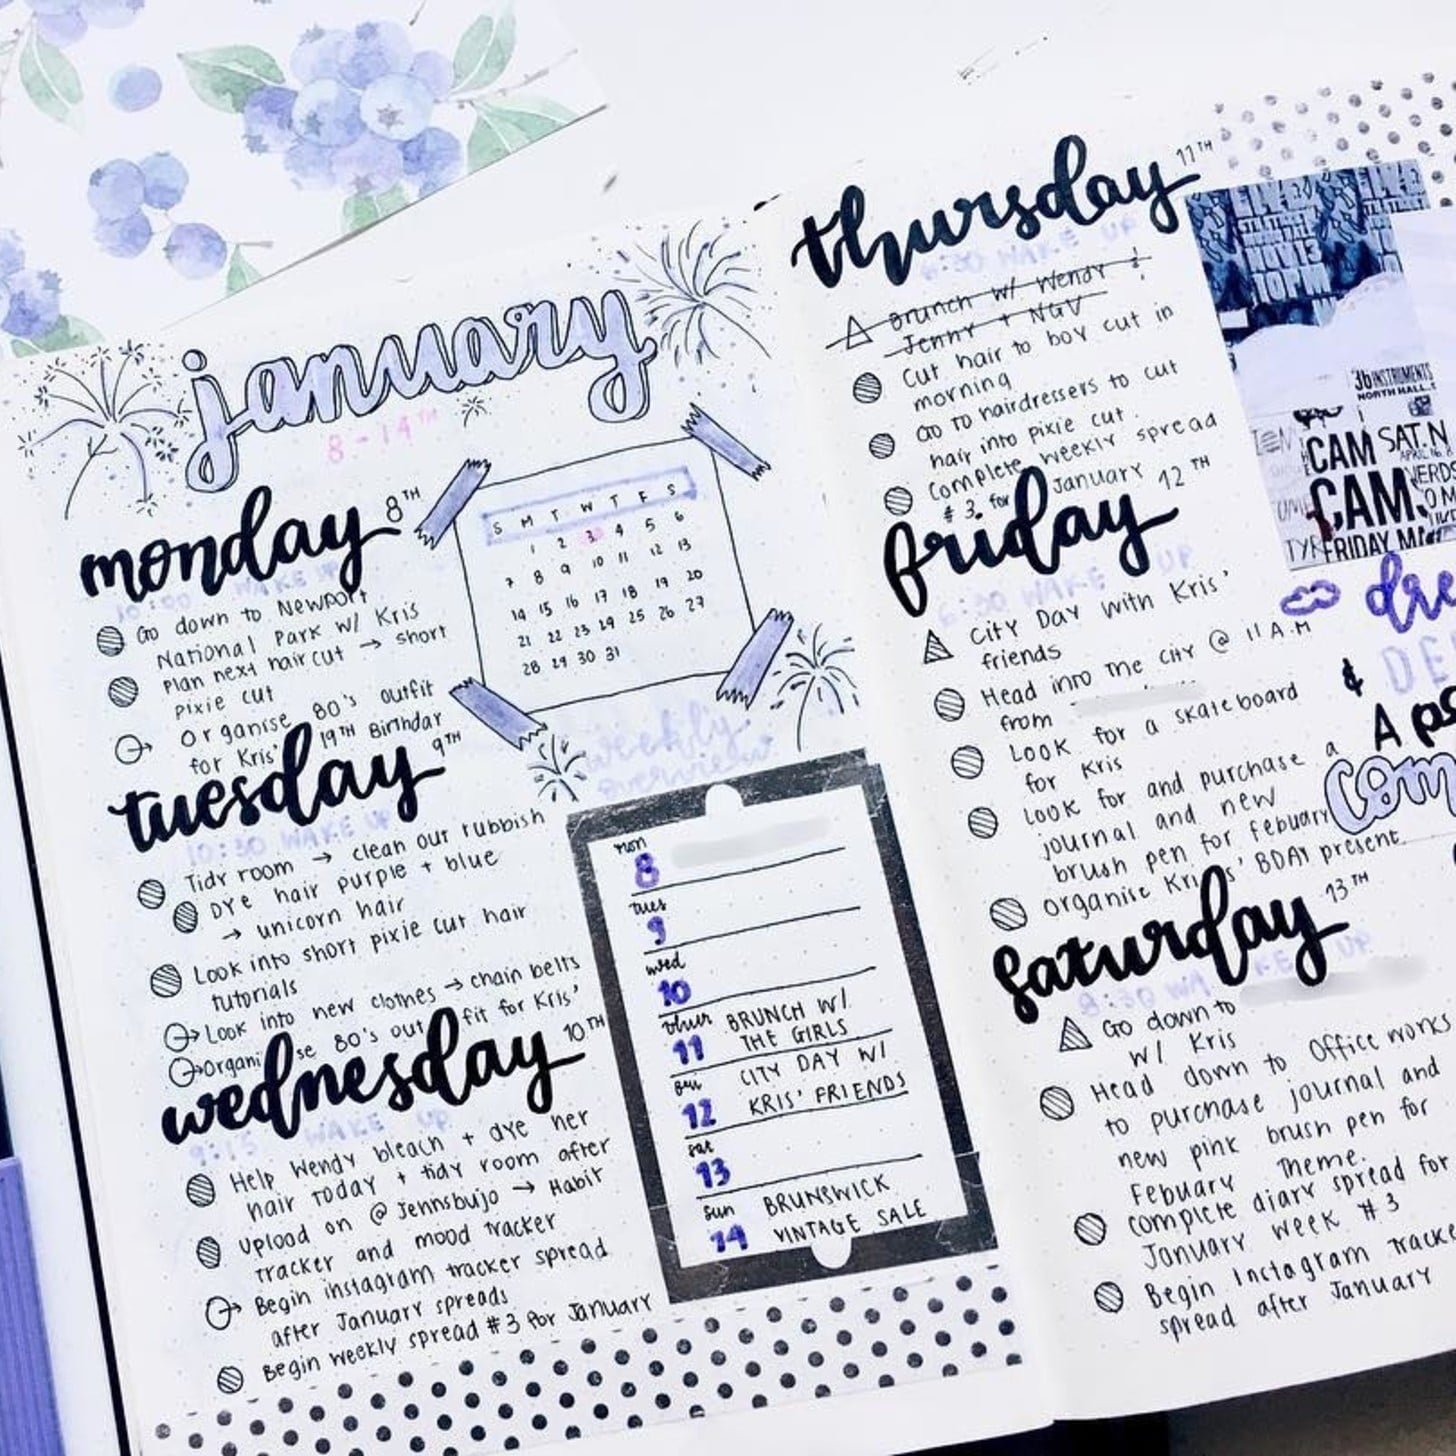 january
8-14TH
monday 8TH
10:00 WAKE UP
Go down to Newport
National Park w/ Kris
Plan next haircut → short
pixie cut
Organise 80's outfit
for Kris' 19TH Birthday
S M T W T F S
1 2 3 4 5 6
7 8 9 10 11 12 13
14 15 16 17 18 19 20
21 22 23 24 25 26 27
28 29 30 31
tuesday 9TH
10:30 WAKE UP
Tidy room → clean out rubbish
DYe hair purple + blue
→ unicorn hair
Look into short pixie cut hair
tutorials
Look into new clothes → chain belts
Organise 80's outfit for Kris'
wednesday 10TH
9:15 WAKE UP
Help Wendy bleach + dye her
hair today + tidy room after
Upload on @Jennsbujo → Habit
Tracker and mood tracker
Begin instagram tracker spread
after January spreads
Begin weekly spread #3 for January
weekly
overview
mon
8
tues
9
wed
10
thur
11 BRUNCH W/
THE GIRLS
12 CITY DAY W/
KRIS' FRIENDS
sat
13
sun
14 BRUNSWICK
VINTAGE SALE
thursday 11TH
WAKE UP
Brunch w/ Wendy &
Jenny + NGV
Cut hair to boy cut in
morning
Go to hairdressers to cut
hair into pixie cut.
Complete weekly spread
#3 for January
friday 12TH
6:30 WAKE UP
City Day with Kris'
friends
Head into the city @ 11 A.M
from
Look for a skateboard
for Kris
Look for and purchase a
journal and new
brush pen for Febuary
organise Kris' BDAY present
saturday 13TH
8:30 WAKE UP
Go down to
w/ Kris
Head down to Officeworks
to purchase journal and
new pink brush pen for
Febuary Theme.
Complete diary spread for
January week #3
Begin Instagram Tracke
spread after January
3b INSTRUMENTS
NORTH HALL
CAM SAT.N
CAM
FRIDAY MA
dre
&
DE
A pe
com